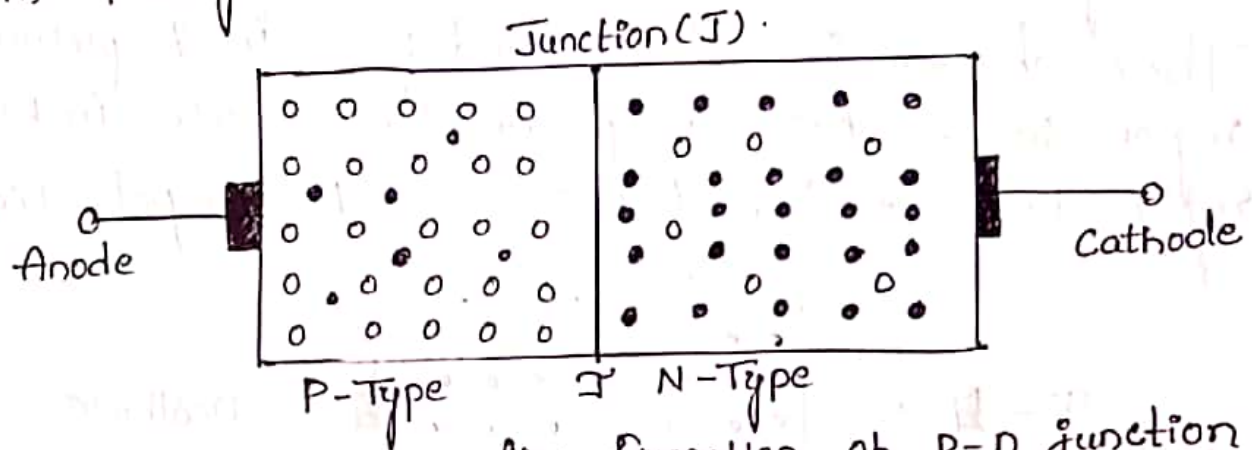 Junction (J).
Anode
Cathode
P-Type J N-Type
P-n junction